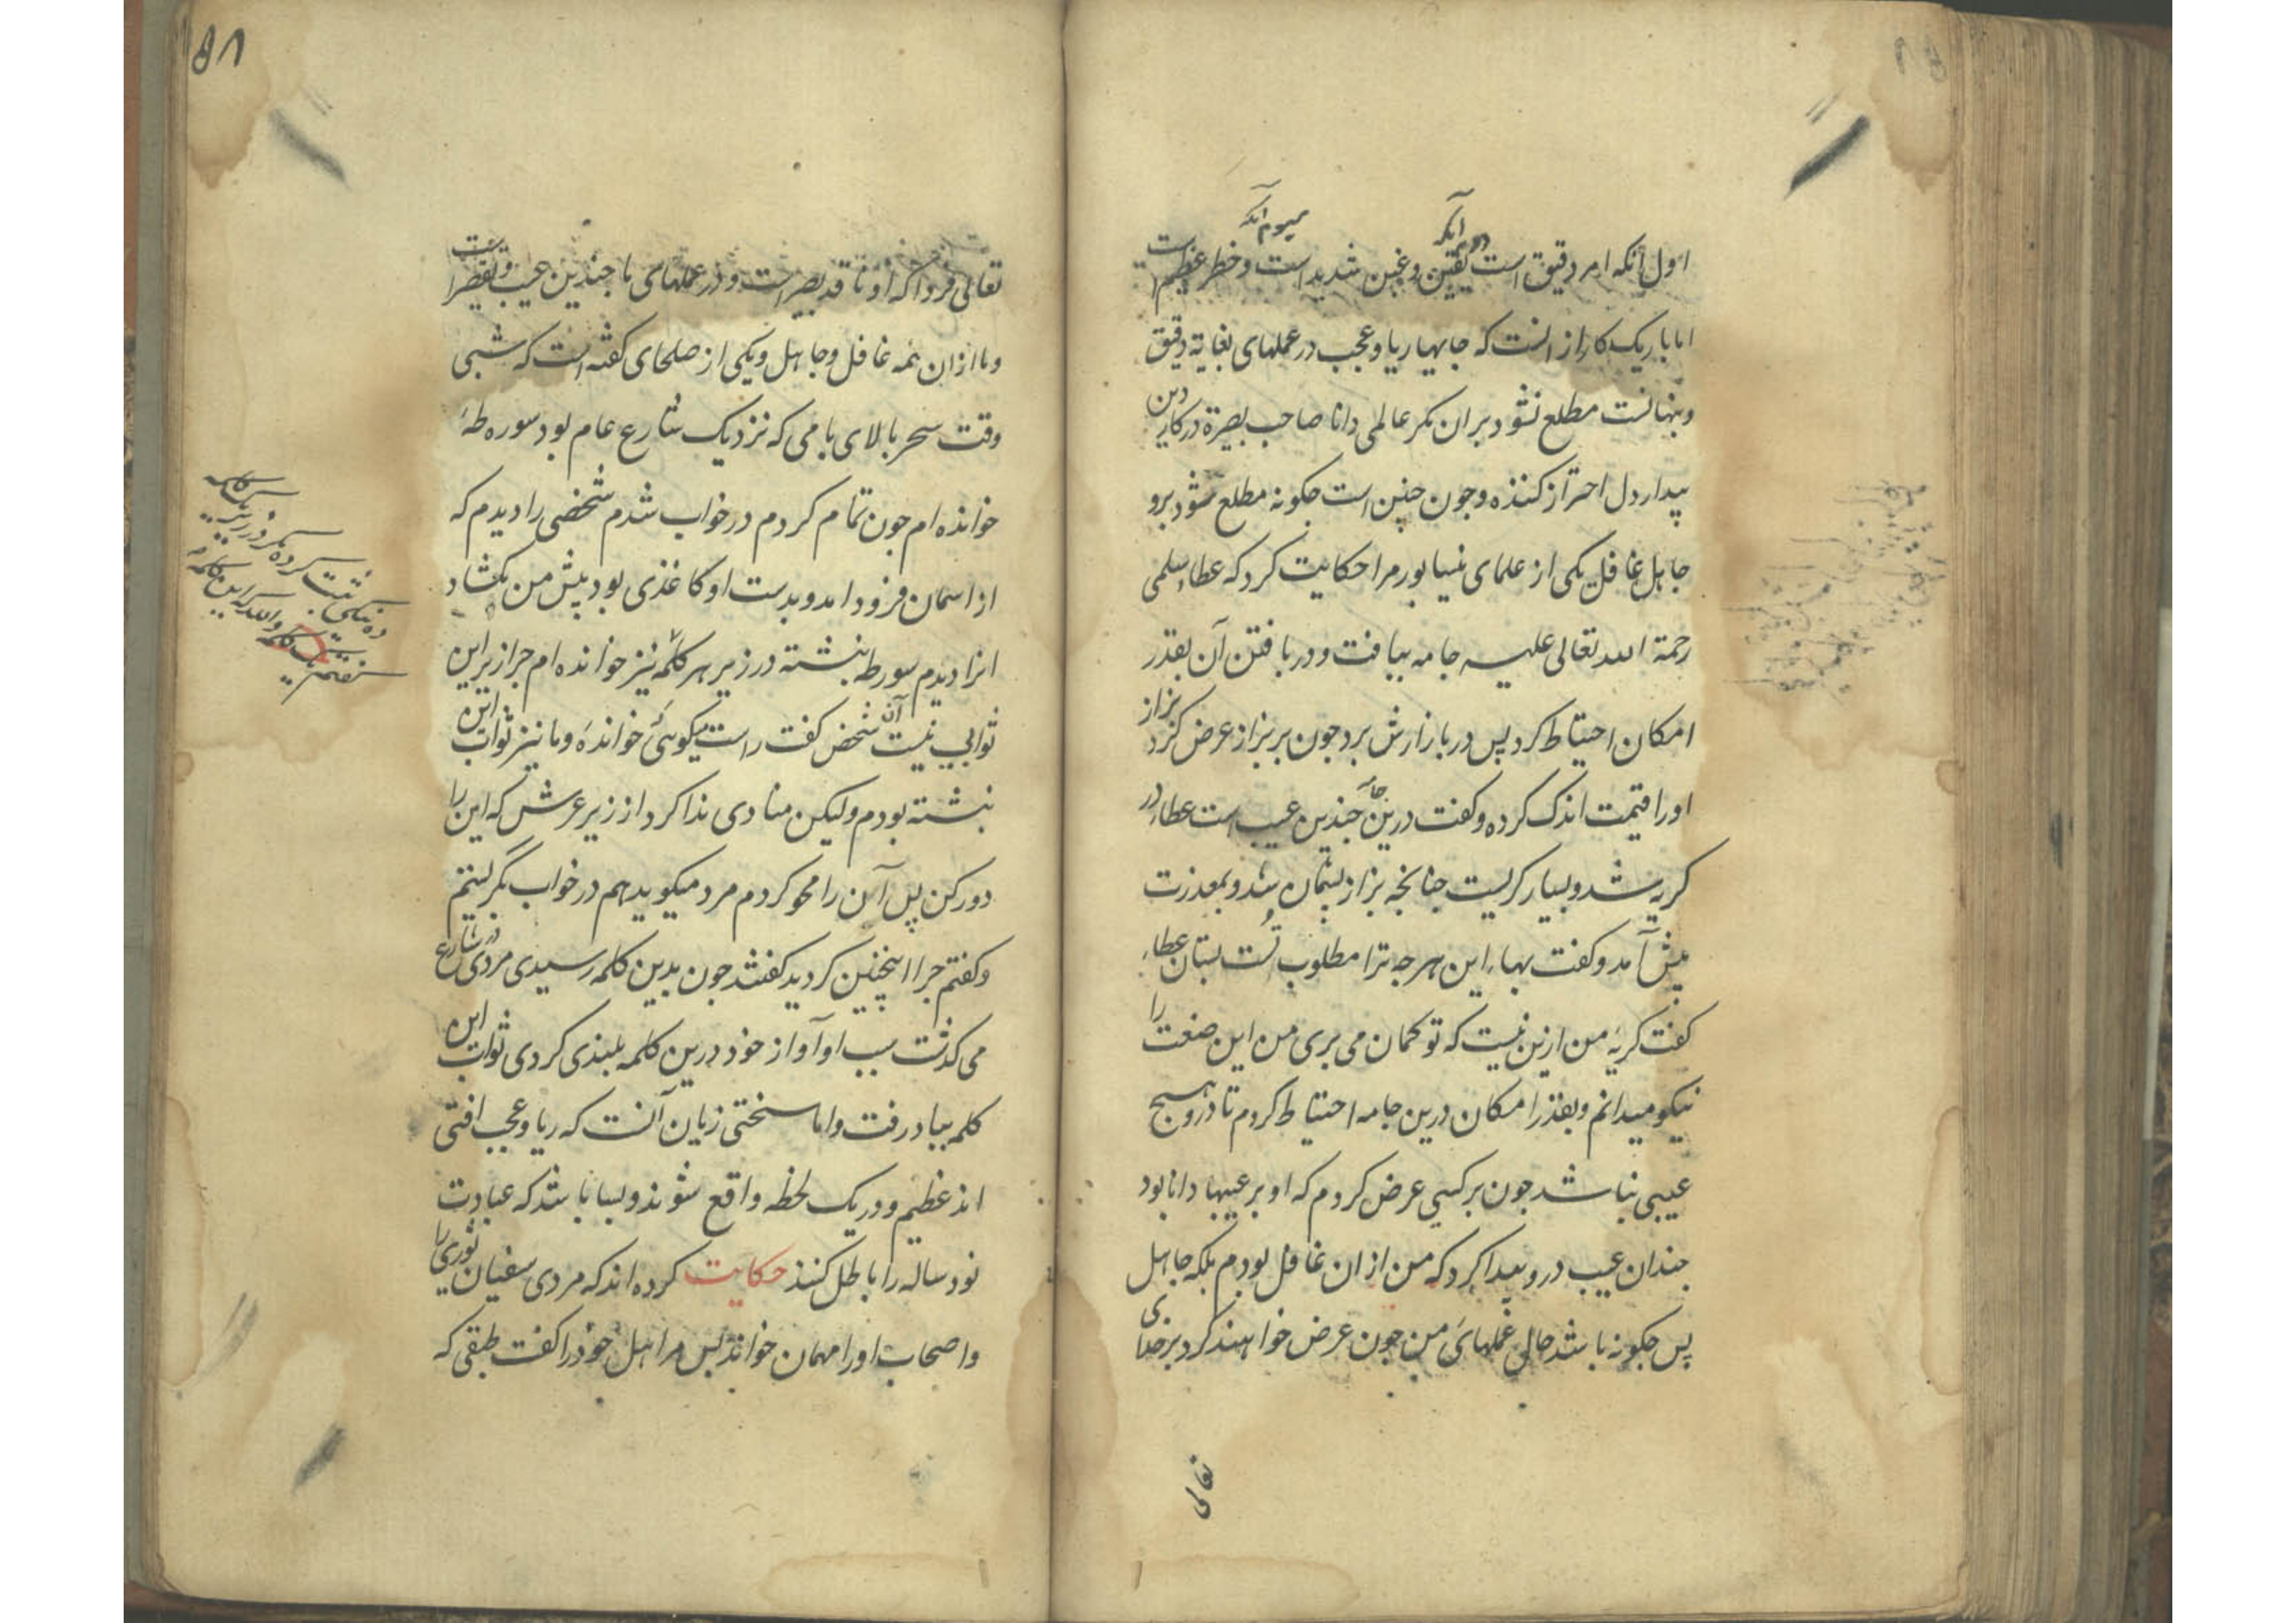 اول آنکه امر دقیق است دوم آنکه یقین و غبن شدید است سیوم آنکه و خطر عظیم است
اما باریک کار از انست که جایهاء ریا و عجب در عملهای بغایة دقیق
و پنهانست مطلع نشود بران مکر عالمی دانا صاحب بصیرة در کار دین
بیدار دل احتراز کننده و چون چنین است چکونه مطلع شود برو
جاهل غافل یکی از علمای نیسابور مرا حکایت کرد که عطاء سلمی
رحمة الله تعالی علیه جامه ببافت و در بافتن آن بقدر
امکان احتیاط کرد پس در بازارش برد چون بر بزاز عرض کرد بزاز
اورا قیمت اندک کرده و کفت درین جامه چندین عیب است عطا در
کریه شد و بسیار کریست چنانچه بزاز پشیمان شد و بمعذرت
پیش آمد و کفت بهاء این هرچه ترا مطلوب تست بستان عطاء
کفت کریهٔ من ازین نیست که تو کمان می بری من این صنعت را
نیکو میدانم و بقدر امکان درین جامه احتیاط کردم تا درو هیچ
عیبی نباشد چون بر کسی عرض کردم که او بر عیبها دانا بود
چندان عیب درو پیدا کرد که من ازان غافل بودم بلکه جاهل
پس چکونه باشد حال عملهای من چون عرض خواهند کرد بر خدای
تعالی
تعالی فردا که او ناقد بصیر است و در عملهای ما چندین عیب و تقصیر است
و ما ازان همه غافل و جاهل و یکی از صلحای کفته است که شبی
وقت سحر بالای بامی که نزدیک شارع عام بود سوره طه
خوانده ام چون تمام کردم در خواب شدم شخصی را دیدم که
از اسمان فرود امد و بدست او کاغذی بود پیش من بکشاد
انرا دیدم سوره طه نبشته در زیر هر کلمه نیز خوانده ام چرا زیر این
ثوابی نیست آن شخص کفت راست میکوئی خواندهٔ و ما نیز ثواب این
نبشته بودم ولیکن منادی ندا کرد از زیر عرش که این را
دور کن پس آن را محو کردم مرد میکوید هم در خواب بکریستم
و کفتم چرا اینچنین کردید کفتند چون بدین کلمه رسیدی مردی در شارع
می کذشت بسبب او آواز خود درین کلمه بلندی کردی ثواب این
کلمه بباد رفت و اما سختی زیان آنست که ریا و عجب افتی
اند عظیم و در یک لحظه واقع شوند و بسا باشد که عبادت
نود ساله را باطل کنند حکایت کرده اند که مردی سفیان ثوری را
و اصحاب اورا مهمان خواند پس مر اهل خود را کفت طبقی که